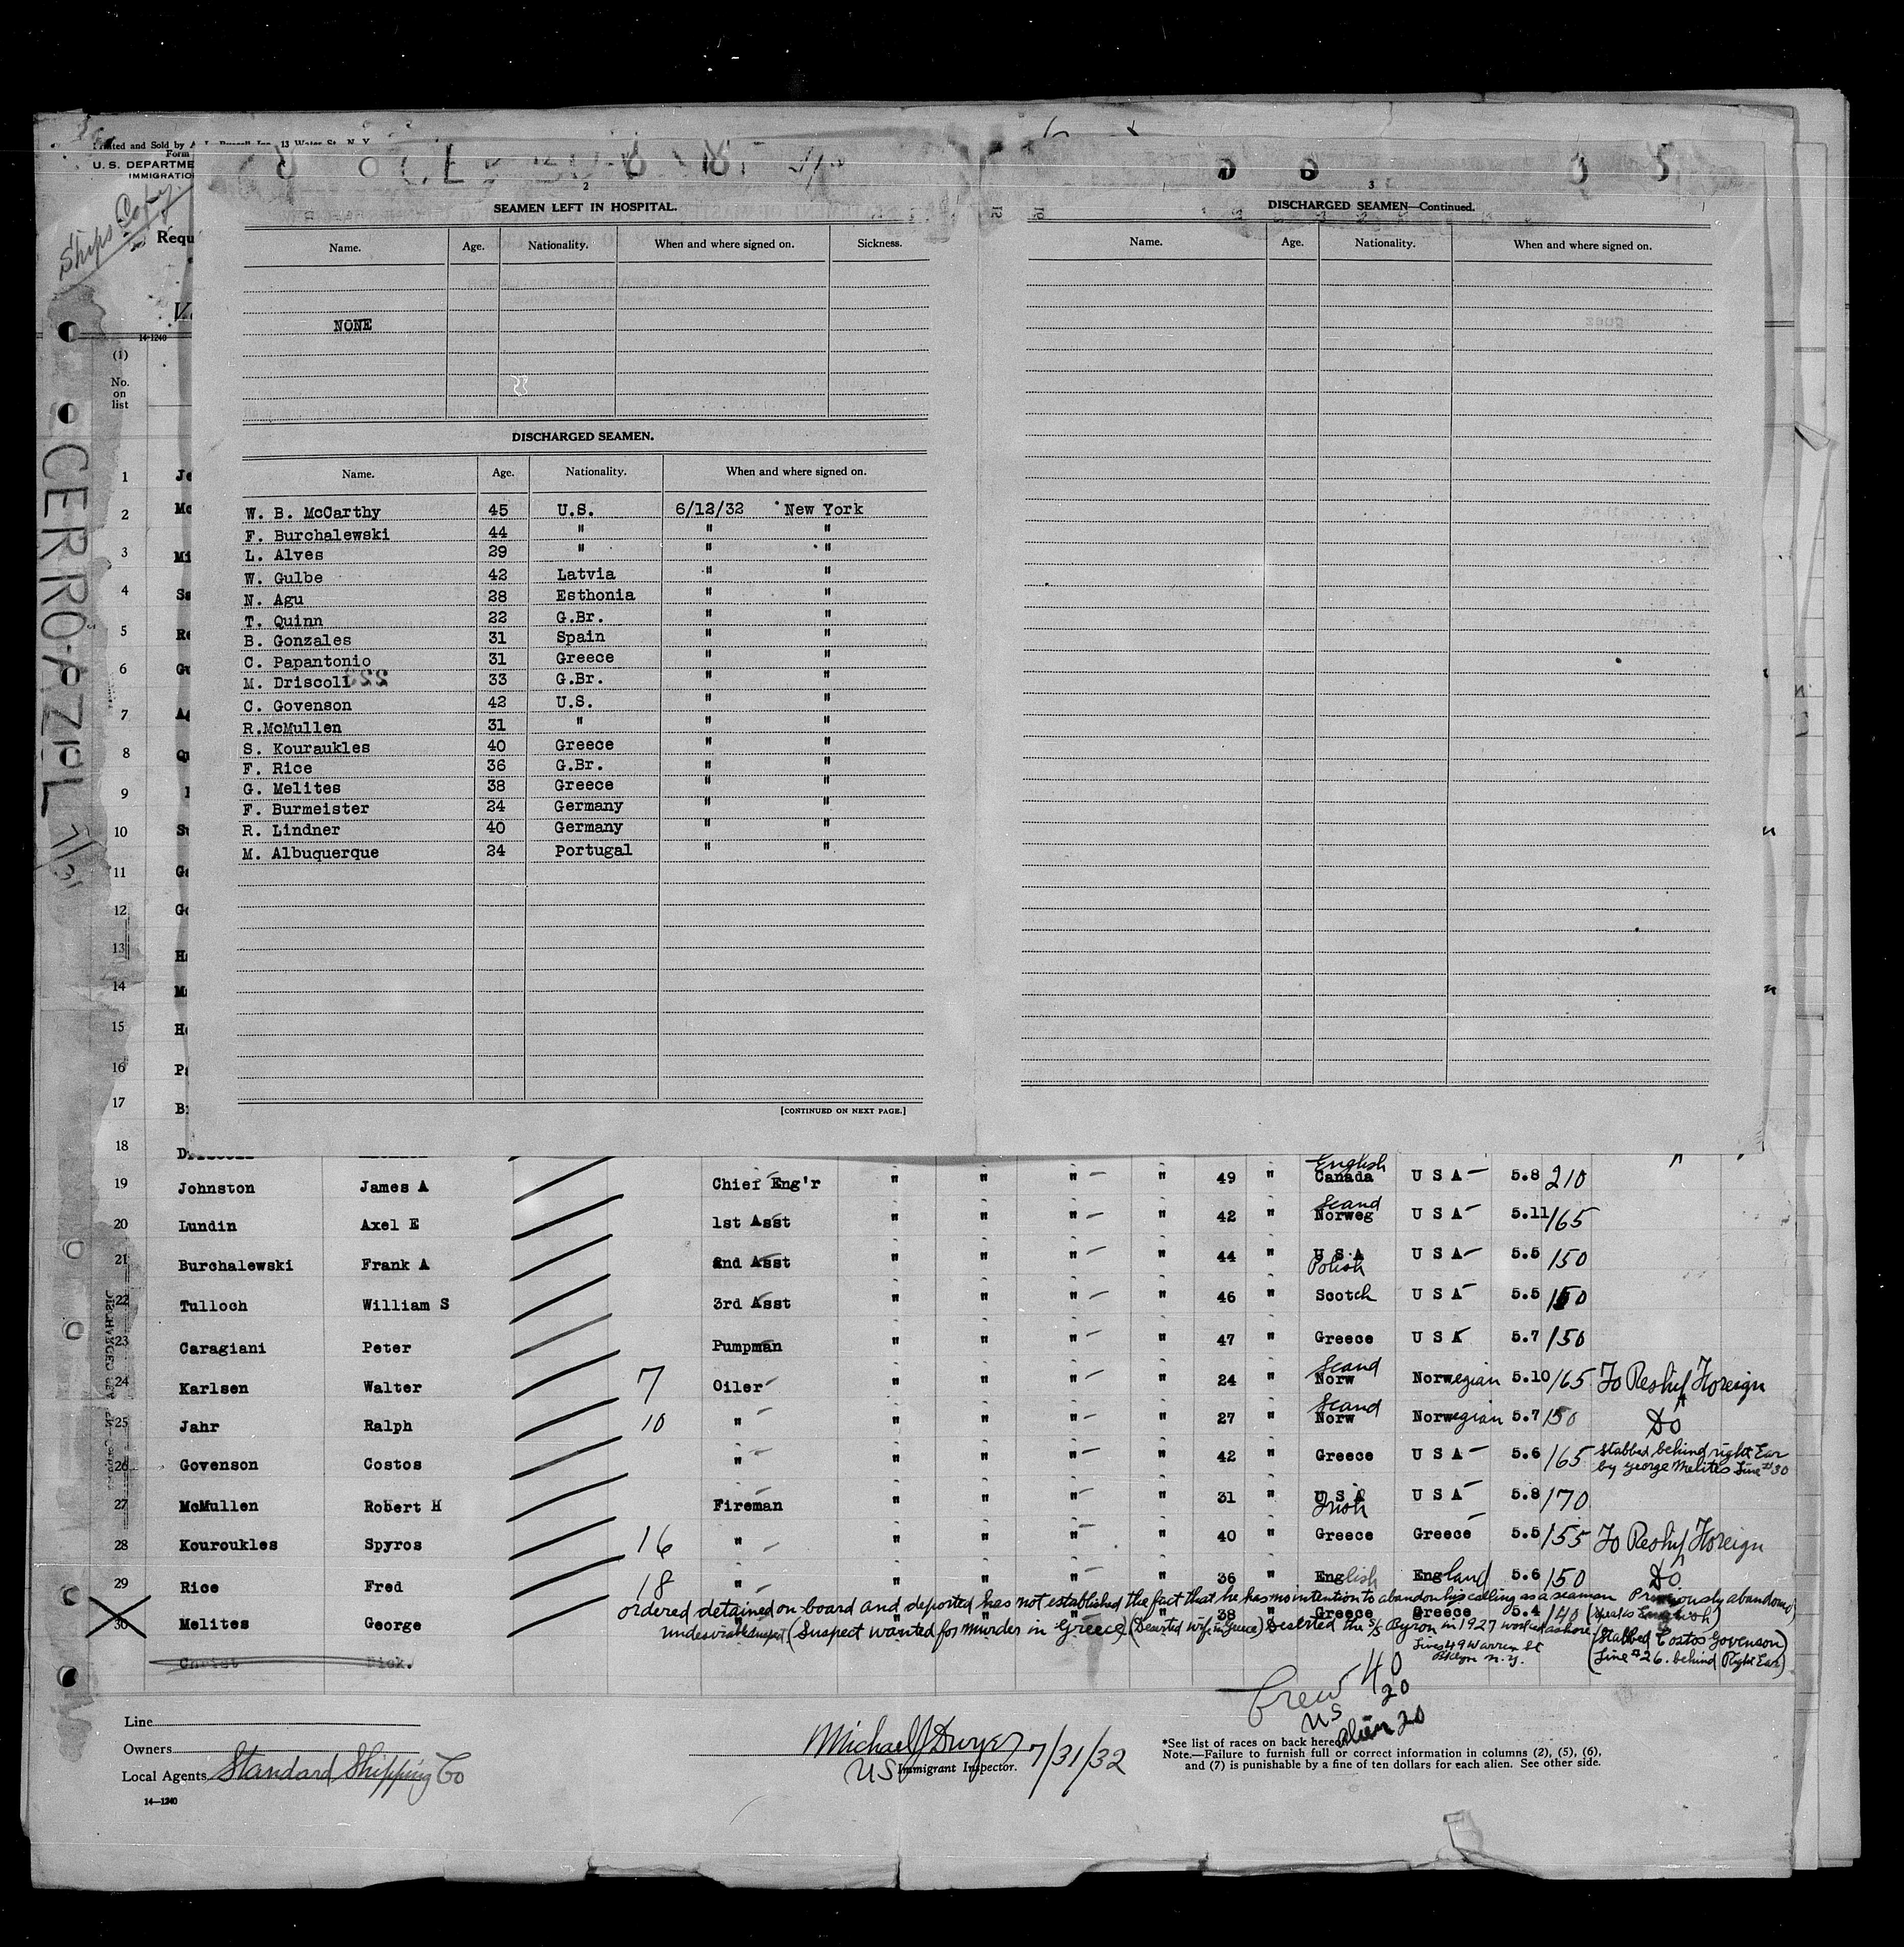 Printed and Sold by
Form
U.S. DEPARTME
IMMIGRATIO
Ships Copy
Requ
14-1240
(1)
No.
on
list
CERRO AZUL
7/31
2
SEAMEN LEFT IN HOSPITAL.
Name. Age. Nationality. When and where signed on. Sickness.
NONE
DISCHARGED SEAMEN.
Name. Age. Nationality. When and where signed on.
W. B. McCarthy 45 U.S. 6/12/32 New York
F. Burchalewski 44 " " "
L. Alves 29 " " "
W. Gulbe 42 Latvia " "
N. Agu 28 Esthonia " "
T. Quinn 22 G.Br. " "
B. Gonzales 31 Spain " "
C. Papantonio 31 Greece " "
M. Driscoll 33 G.Br. " "
C. Govenson 42 U.S. " "
R.McMullen 31 " " "
S. Kouraukles 40 Greece " "
F. Rice 36 G.Br. " "
G. Melites 38 Greece " "
F. Burmeister 24 Germany " "
R. Lindner 40 Germany " "
M. Albuquerque 24 Portugal " "
[CONTINUED ON NEXT PAGE.]
3
DISCHARGED SEAMEN—Continued.
Name. Age. Nationality. When and where signed on.
1 Je
2 Mc
3 Mi
4 Sa
5 Re
6 Gu
7 Ag
8 Qu
9
10 Su
11 Ga
12 Go
13 Ha
14 Ma
15 He
16 Pa
17 Br
18 Driscoll
English
19 Johnston James A Chief Eng'r " " " " 49 " Canada U S A 5.8 210
Scand
20 Lundin Axel E 1st Asst " " " " 42 " Norweg U S A 5.11 165
21 Burchalewski Frank A 2nd Asst " " " " 44 " U S A U S A 5.5 150
Polish
22 Tulloch William S 3rd Asst " " " " 46 " Scotch U S A 5.5 150
23 Caragiani Peter Pumpman " " " " 47 " Greece U S A 5.7 150
Scand
24 Karlsen Walter 7 Oiler " " " " 24 " Norw Norwegian 5.10 165 To Reship Foreign
Scand
25 Jahr Ralph 10 " " " " " 27 " Norw Norwegian 5.7 150 Do
26 Govenson Costos " " " " " 42 " Greece U S A 5.6 165 Stabbed behind right Ear
by George Melites Line #30
27 McMullen Robert H Fireman " " " " 31 " U S A U S A 5.8 170
Irish
28 Kouroukles Spyros 16 " " " " " 40 " Greece Greece 5.5 155 To Reship Foreign
29 Rice Fred 18 " " " " " 36 " English England 5.6 150 Do
ordered detained on board and deported has not established the fact that he has no intention to abandon his calling as a seaman Previously abandoned
30 Melites George " " " " " 38 " Greece Greece 5.4 140 (Speaks English)
undesirable suspect (Suspect wanted for murder in Greece) (Deserted wife in Greece) Deserted the S/S Byron in 1927 worked ashore
Lives 49 Warren St
Bklyn N.Y.
(Stabbed Costos Govenson)
(Line #26. behind Right Ear)
Christ Nick.
Crew 40
US 20
Alien 20
Line
Owners
Local Agents Standard Shipping Co
14—1240
Michael J Dwyer 7/31/32
US Immigrant Inspector.
*See list of races on back hereof
Note.—Failure to furnish full or correct information in columns (2), (5), (6),
and (7) is punishable by a fine of ten dollars for each alien. See other side.